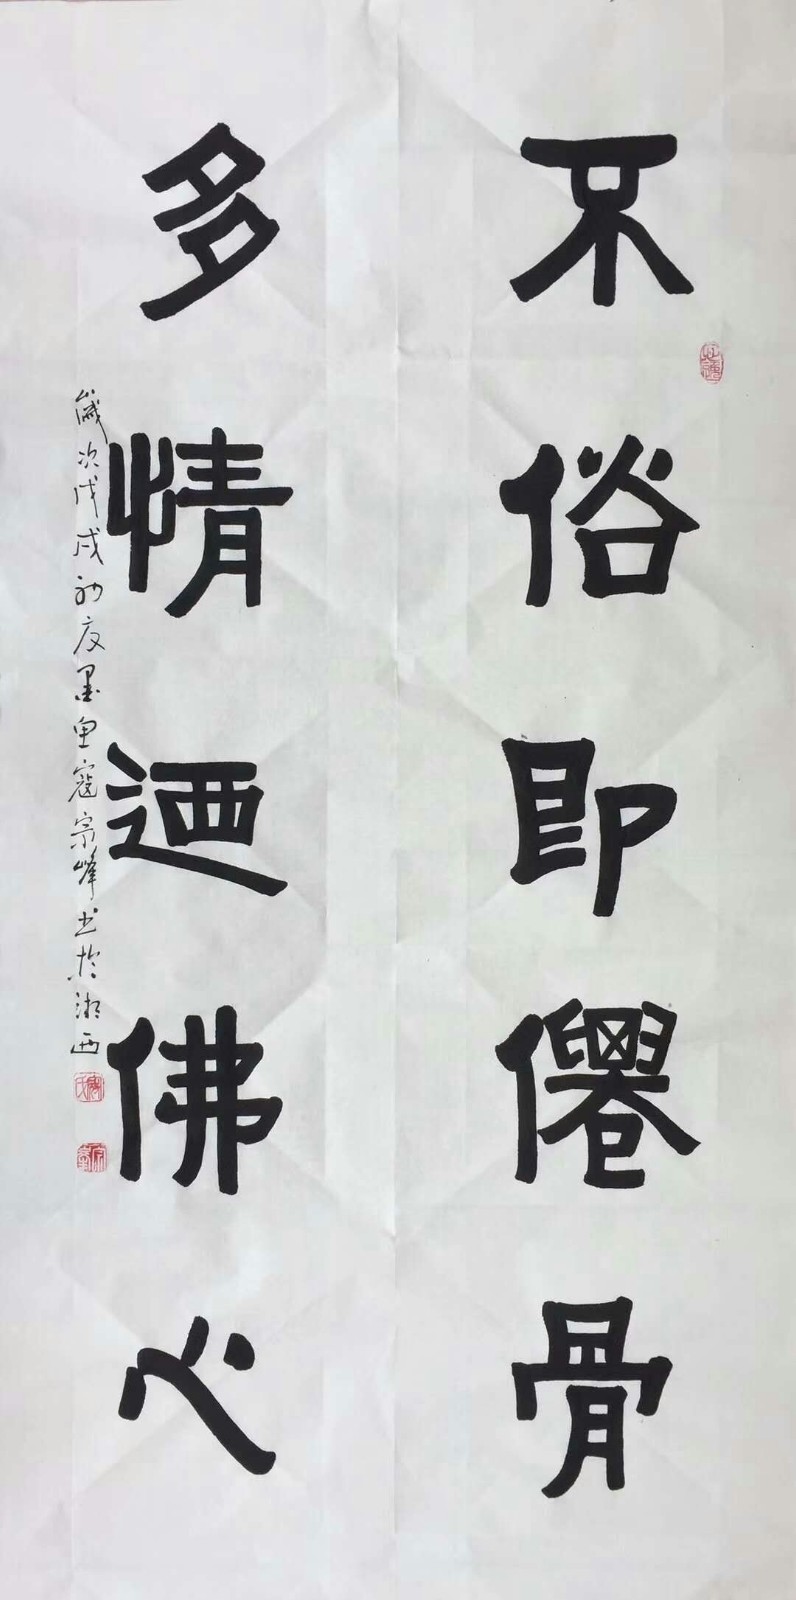 不俗即僊骨
多情迺佛心
歲次戊戌初夏墨魚寇宗峰书於湘西